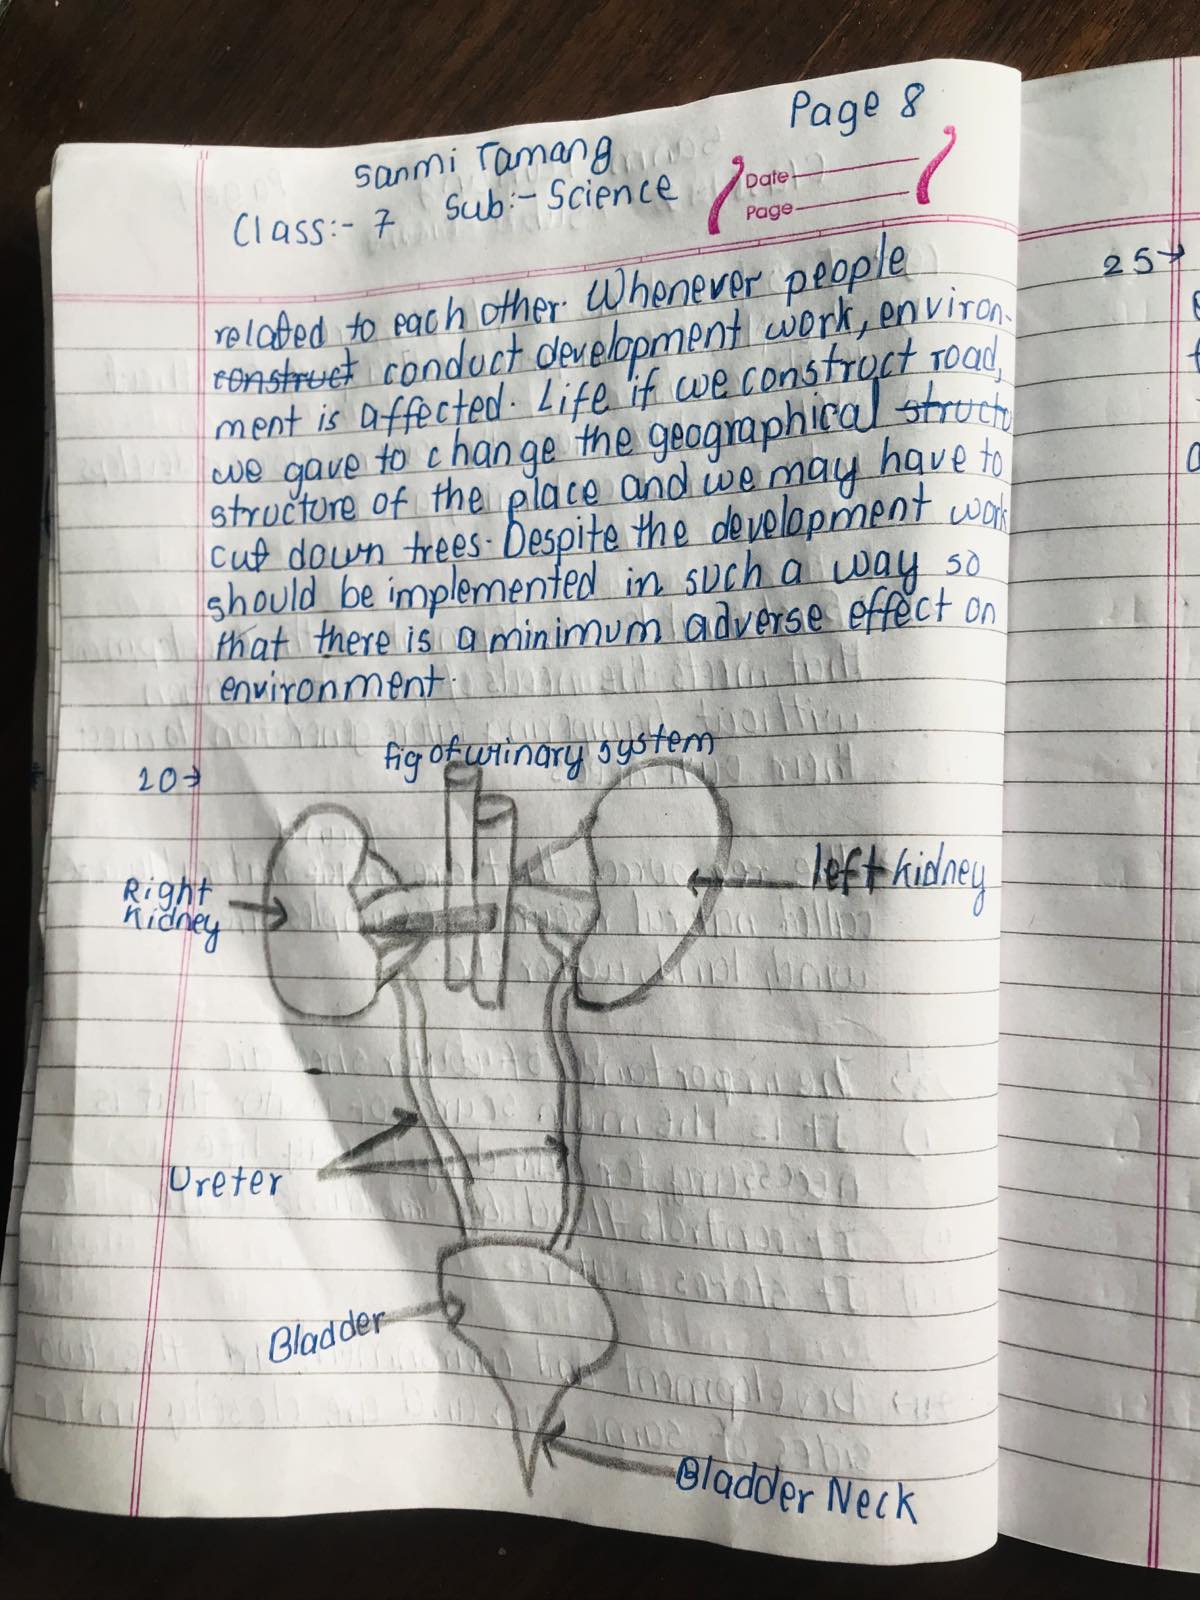 Page 8
Sanmi Tamang
Class:- 7 Sub:- Science
Date
Page
related to each other. Whenever people
construct conduct development work, environ-
ment is affected. Life if we construct road,
we gave to change the geographical structu
structure of the place and we may have to
cut down trees. Despite the development work
should be implemented in such a way so
that there is a minimum adverse effect on
environment.
20→
fig of urinary system
Right
Kidney
left kidney
Ureter
Bladder
Bladder Neck
25→